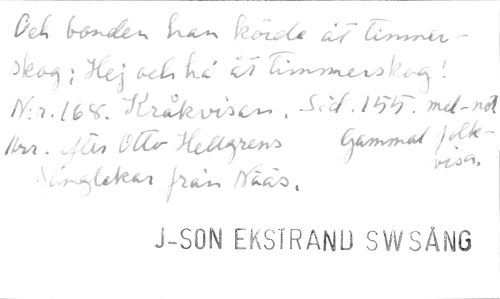 Och bonden han körde åt timmer-
skog; Hej och hå åt timmerskog!
N:r. 168. Kråkvisan. Sid. 155. mel-not
Arr. efter Otto Hellgrens Gammal folk-
Sånglekar från Nääs. visa.
J-SON EKSTRAND SWSÅNG